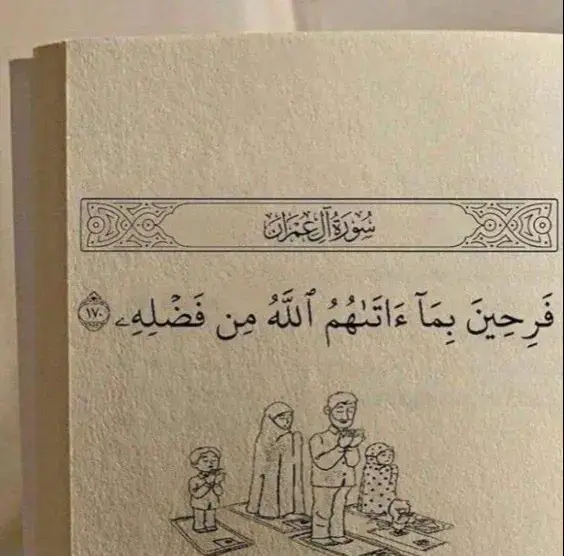 سُورَةُ آلِ عِمْرَانَ
فَرِحِينَ بِمَآ ءَاتَىٰهُمُ ٱللَّهُ مِن فَضْلِهِۦ ١٧٠